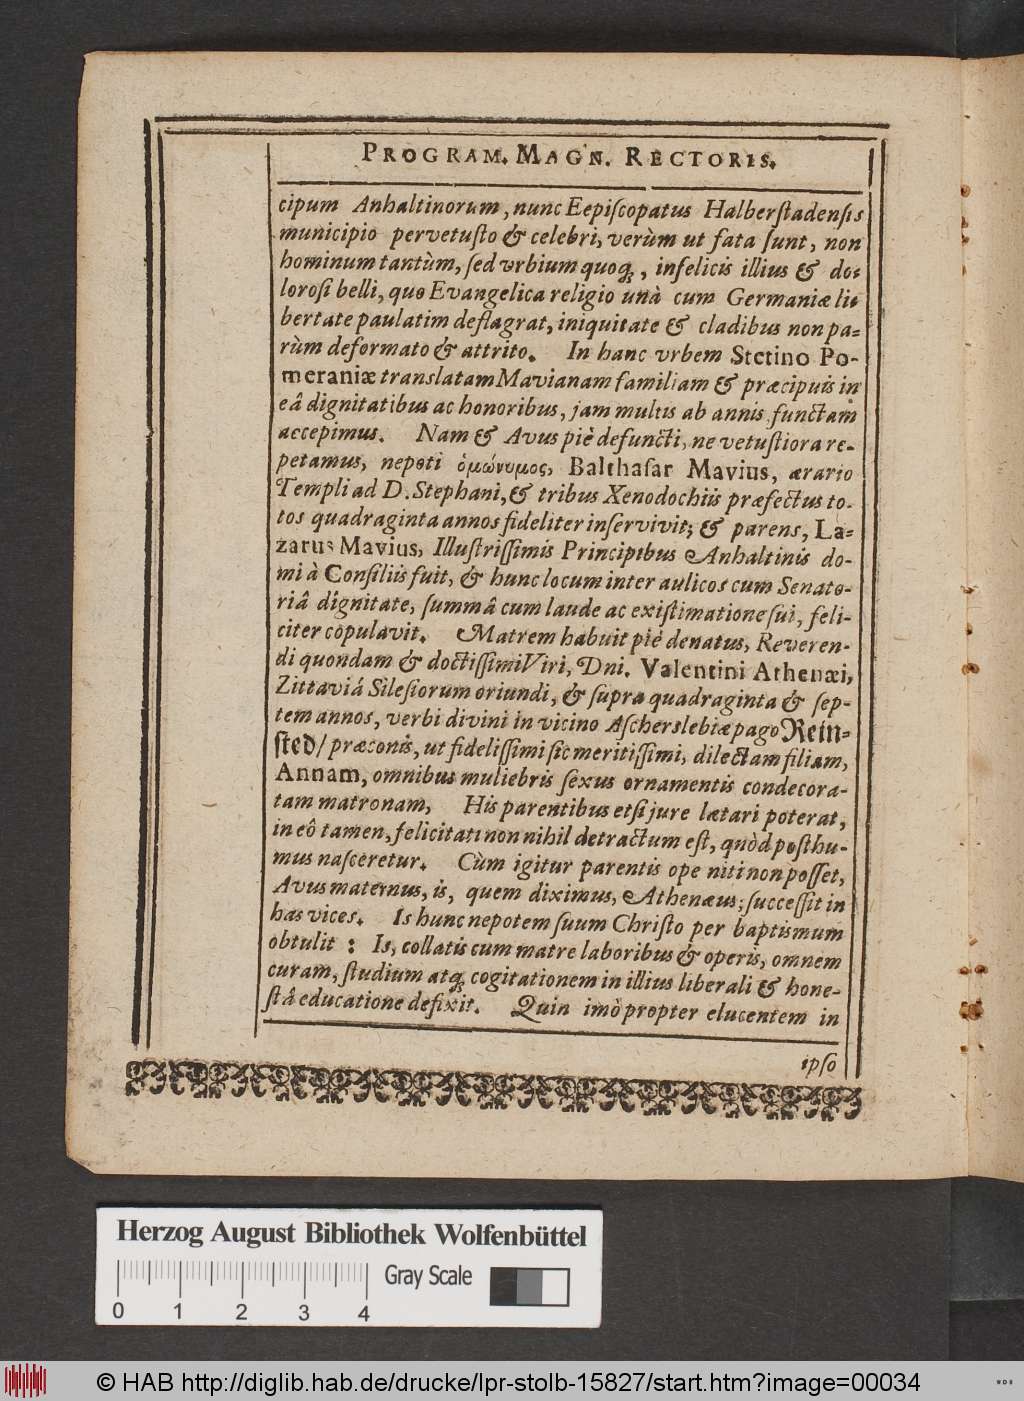 PROGRAM. MAGN. RECTORIS.
cipum Anhaltinorum, nunc Eepiſcopatus Halberſtadenſis
municipio pervetuſto & celebri, verùm ut fata ſunt, non
hominum tantùm, ſed vrbium quoq́ꝫ, infelicis illius & do-
loroſi belli, quo Evangelica religio unà cum Germaniæ li-
bertate paulatim deflagrat, iniquitate & cladibus non pa-
rùm deformato & attrito. In hanc vrbem Stetino Po-
meraniæ translatam Mavianam familiam & præcipuis in
eâ dignitatibus ac honoribus, jam multis ab annis functam
accepimus. Nam & Avus piè defuncti, ne vetuſtiora re-
petamus, nepoti ὁμώνυμος, Balthaſar Mavius, ærario
Templi ad D. Stephani, & tribus Xenodochiis præfectus to-
tos quadraginta annos fideliter inſervivit; & parens, La-
zarus Mavius, Illuſtriſſimis Principibus Anhaltinis do-
mi à Conſiliis fuit, & hunc locum inter aulicos cum Senato-
riâ dignitate, ſummâ cum laude ac exiſtimatione ſui, feli-
citer copulavit. Matrem habuit piè denatus, Reveren-
di quondam & doctiſſimi Viri, Dni. Valentini Athenæi,
Zittaviá Sileſiorum oriundi, & ſupra quadraginta & ſep-
tem annos, verbi divini in vicino Aſcherslebiæ pago Rein-
ſted/ præconis, ut fideliſſimi ſic meritiſſimi, dilectam filiam,
Annam, omnibus muliebris ſexus ornamentis condecora-
tam matronam, His parentibus etſi jure lætari poterat,
in eô tamen, felicitati non nihil detractum eſt, quòd poſthu-
mus naſceretur. Cùm igitur parentis ope niti non poſſet,
Avus maternus, is, quem diximus, Athenæus; ſucceſſit in
has vices. Is hunc nepotem ſuum Chriſto per baptismum
obtulit: Is, collatis cum matre laboribus & operis, omnem
curam, ſtudium atq́ꝫ cogitationem in illius liberali & hone-
ſtâ educatione defixit. Quin imò propter elucentem in
ipſo
Herzog August Bibliothek Wolfenbüttel
Gray Scale
0 1 2 3 4
© HAB http://diglib.hab.de/drucke/lpr-stolb-15827/start.htm?image=00034